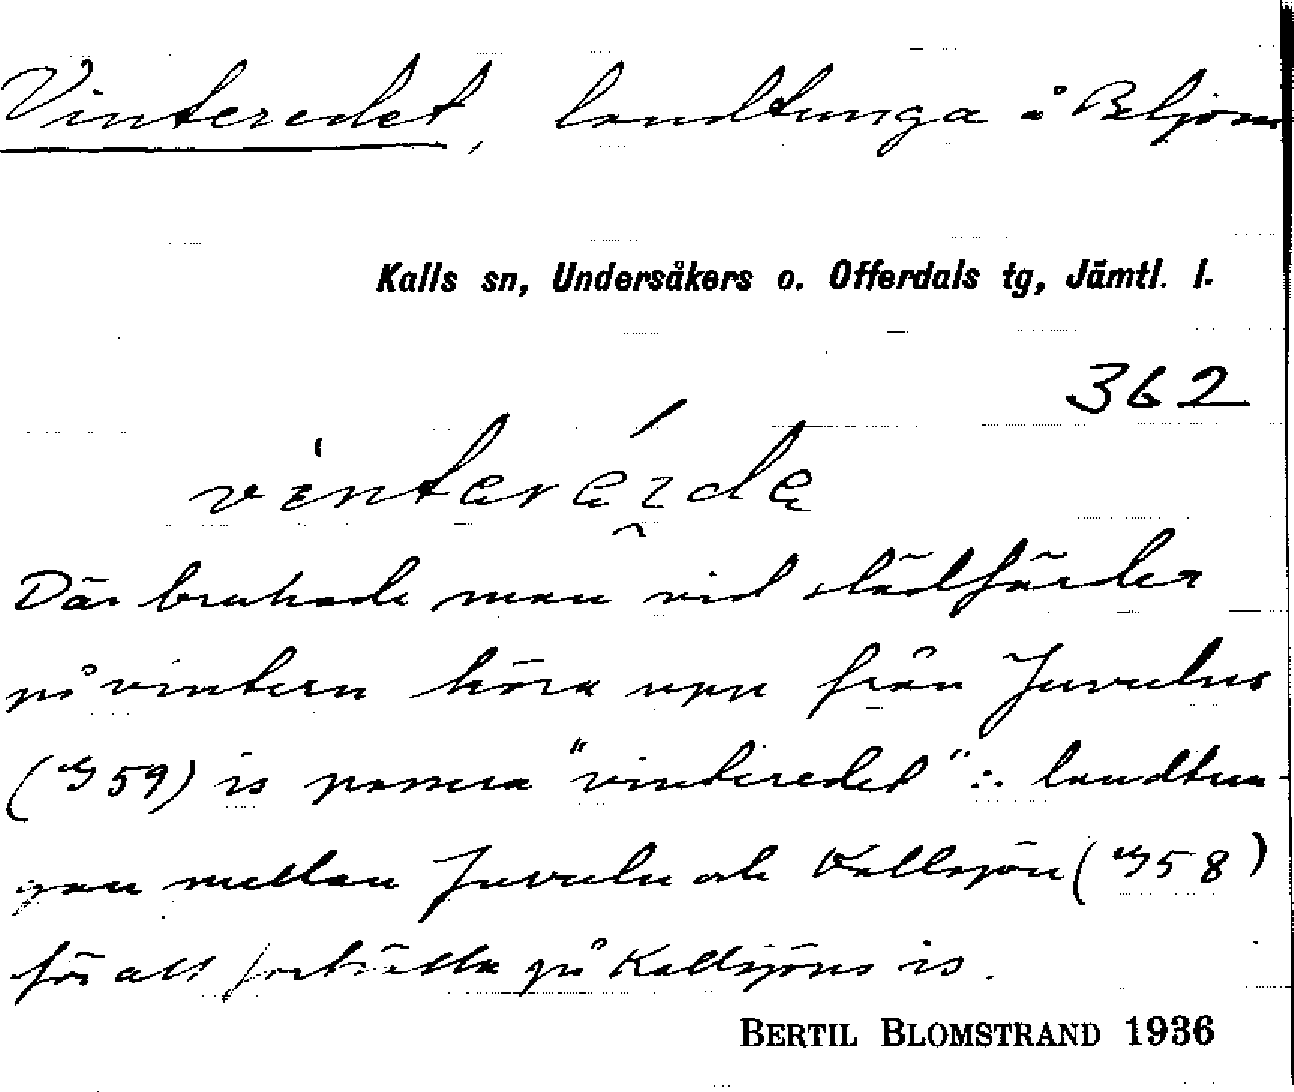 Vinteredet, landtunga i
Kalls sn, Undersåkers o. Offerdals tg, Jämtl. l.
362
Där brukade man vid slädfärder
på vintern köra upp från Juvulns
59) is passera "vinteredet" :. landtun-
gan mellan Juvuln och Kallsjön ( 58)
för att fortsätta på Kallsjöns is.
BERTIL BLOMSTRAND 1936